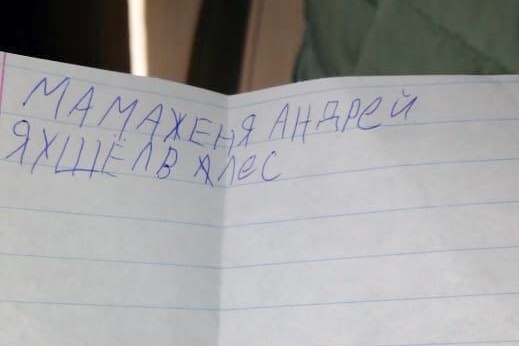 МАМАЖЕНЯ АНДРЕЙ
ЯХШЁЛВ АЛЕС